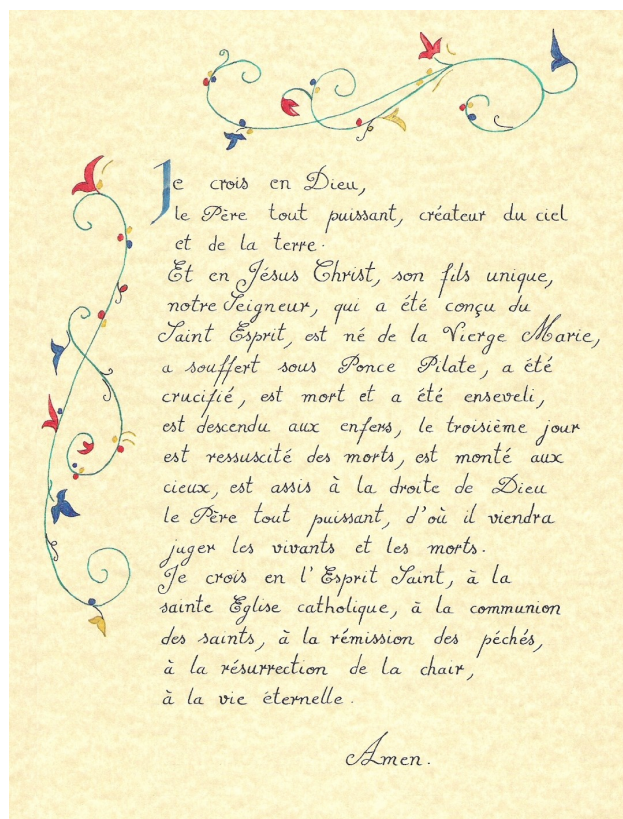 Je crois en Dieu,
le Père tout puissant, créateur du ciel
et de la terre.
Et en Jésus Christ, son fils unique,
notre Seigneur, qui a été conçu du
Saint Esprit, est né de la Vierge Marie,
a souffert sous Ponce Pilate, a été
crucifié, est mort et a été enseveli,
est descendu aux enfers, le troisième jour
est ressuscité des morts, est monté aux
cieux, est assis à la droite de Dieu
le Père tout puissant, d'où il viendra
juger les vivants et les morts.
Je crois en l'Esprit Saint, à la
sainte Eglise catholique, à la communion
des saints, à la rémission des péchés,
à la résurrection de la chair,
à la vie éternelle.
Amen.